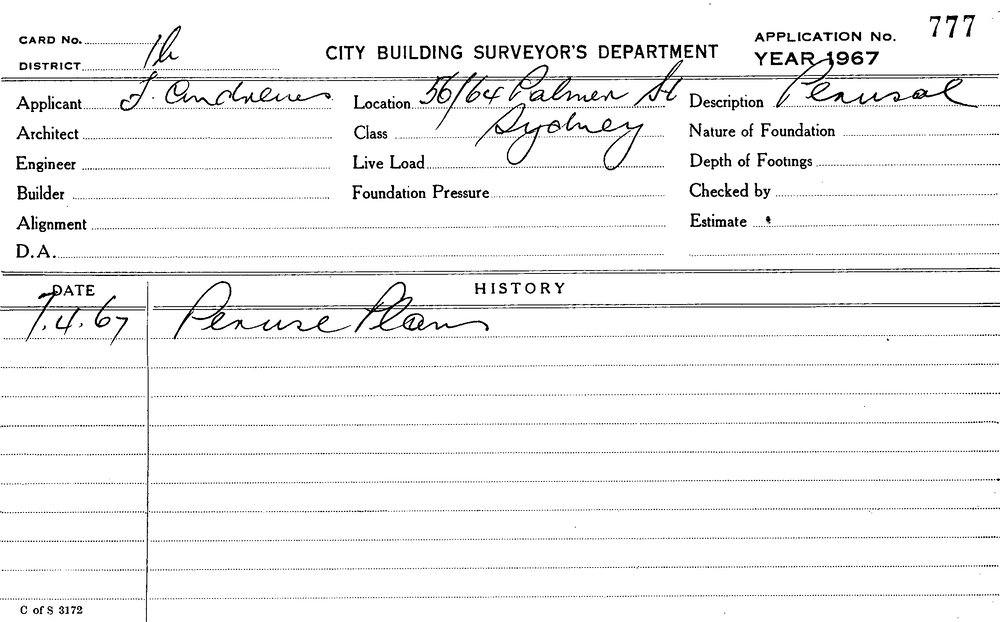 777
CARD No.
DISTRICT 1h
CITY BUILDING SURVEYOR'S DEPARTMENT
APPLICATION No.
YEAR 1967
Applicant J. Andrews
Location 56/64 Palmer St
Sydney
Description Perusal
Architect
Class
Nature of Foundation
Engineer
Live Load
Depth of Footings
Builder
Foundation Pressure
Checked by
Alignment
Estimate
D.A.
DATE
HISTORY
7.4.67 Peruse Plans
C of S 3172